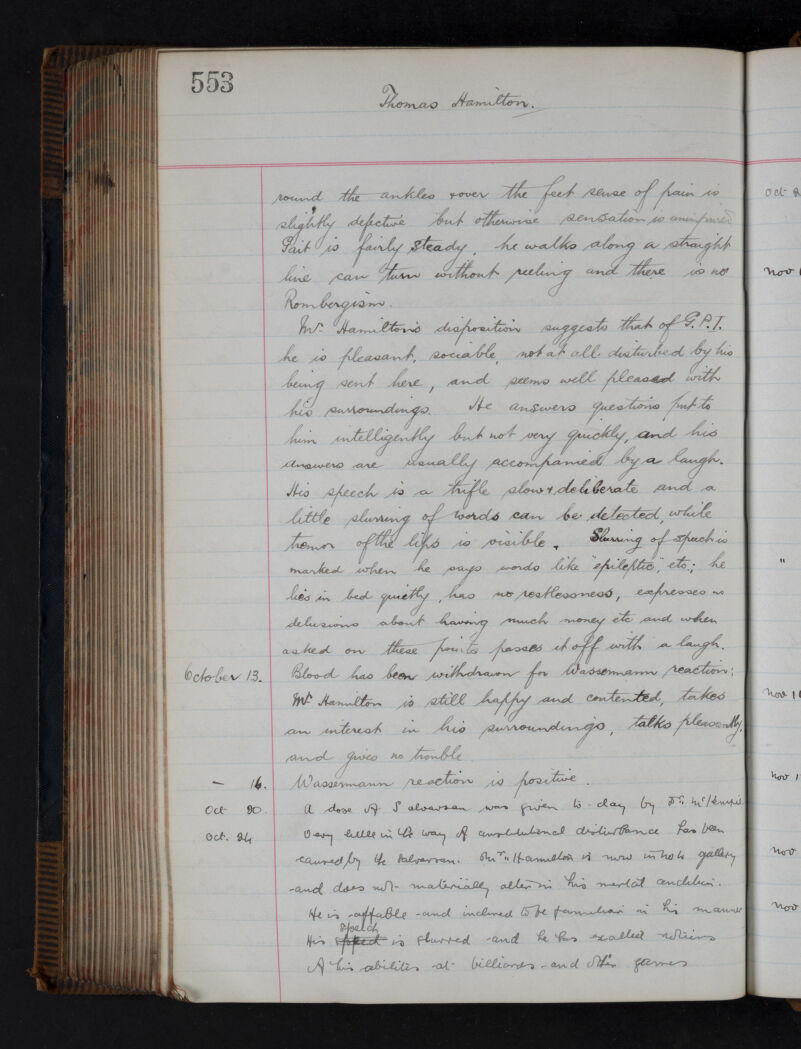 553
Thomas Hamilton.
round the ankles & over the feet sense of pain is
slightly defective but otherwise sensation is unimpaired
Gait is fairly steady, he walks along a straight
line can turn without reeling and there is no
Rombergism.
Mr. Hamilton's disposition suggests that of G.P.I.
he is pleasant, sociable, not at all disturbed by his
being sent here, and seems well pleased with
his surroundings. He answers questions put to
him intelligently but not very quickly, and his
answers are usually accompanied by a laugh.
His speech is a trifle slow & deliberate and a
little slurring of words can be detected, while
tremor of the lips is visible. Slurring of speech is
marked when he says words like "epileptic", etc; he
lies in bed quietly, has no restlessness, expresses no
delusions about having much money etc and when
asked on these points passes it off with a laugh.
October 13. Blood has been withdrawn for Wassermann reaction;
Mr Hamilton is still happy and contented, takes
an interest in his surroundings, talks pleasantly,
and gives no trouble
— 16. Wassermann reaction is positive.
Oct 20. A dose of Salvarsan was given to-day by Dr.
Oct. 24 Very little in the way of constitutional disturbance has been
caused by the Salvarsan. Mr. Hamilton is now in gallery
and does not materially alter in his mental condition.
He is affable and inclined to be familiar in his manner
His speech is slurred and he has exalted notions
of his abilities at billiards and other games
Oct 2
Nov
"
Nov 1
Nov 1
Nov
Nov